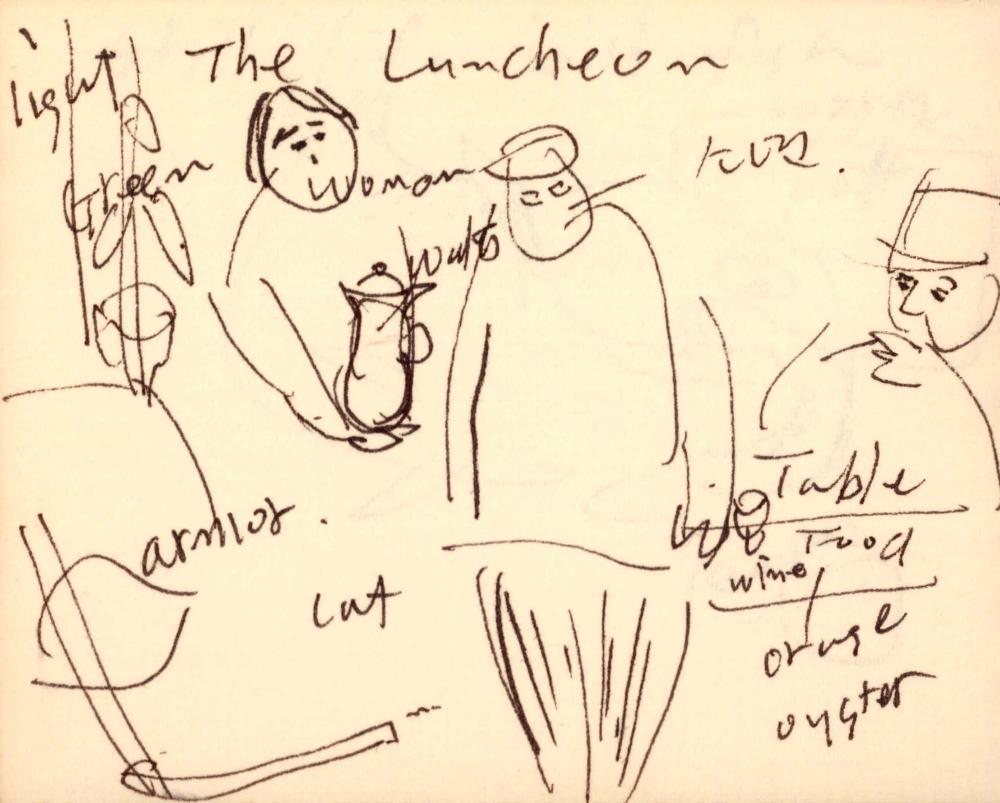 The Luncheon
light
Green
Woman
armor.
cat
Table
Food
wine
orange
oyster